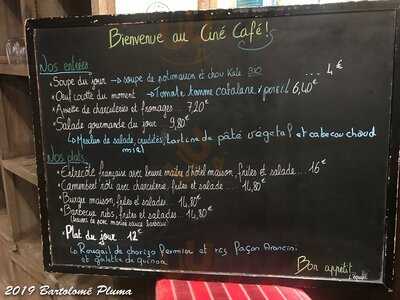 Bienvenue au Ciné Café!
Nos entrées
*Soupe du jour → soupe de potimarron et chou Kale BIO ... 4€
*Oeuf cocotte du moment → Tomate tomme catalane, persil 6,40€
*Assiette de charcuteries et fromages 7,20€
*Salade gourmande du jour 9,80€
↳ Mesclun de salade, crudités, tartine de pâté végétal et cabecou chaud
miel
Nos plats
*Entrecôte française avec beurre maître d'hôtel maison, frites et salade... 16€
*Camembert rôti avec charcuterie, frites et salade.... 14,80€
*Burger maison, frites et salade... 14,80€
*Barbecue ribs, frites et salades.... 14,80€
(travers de porc mariné sauce barbecue)
*Plat du jour 12€
↳ Rougail de chorizo fermier et riz façon Arancini
et galette de quinoa
Bon appetit
2019 Bartolomé Pluma